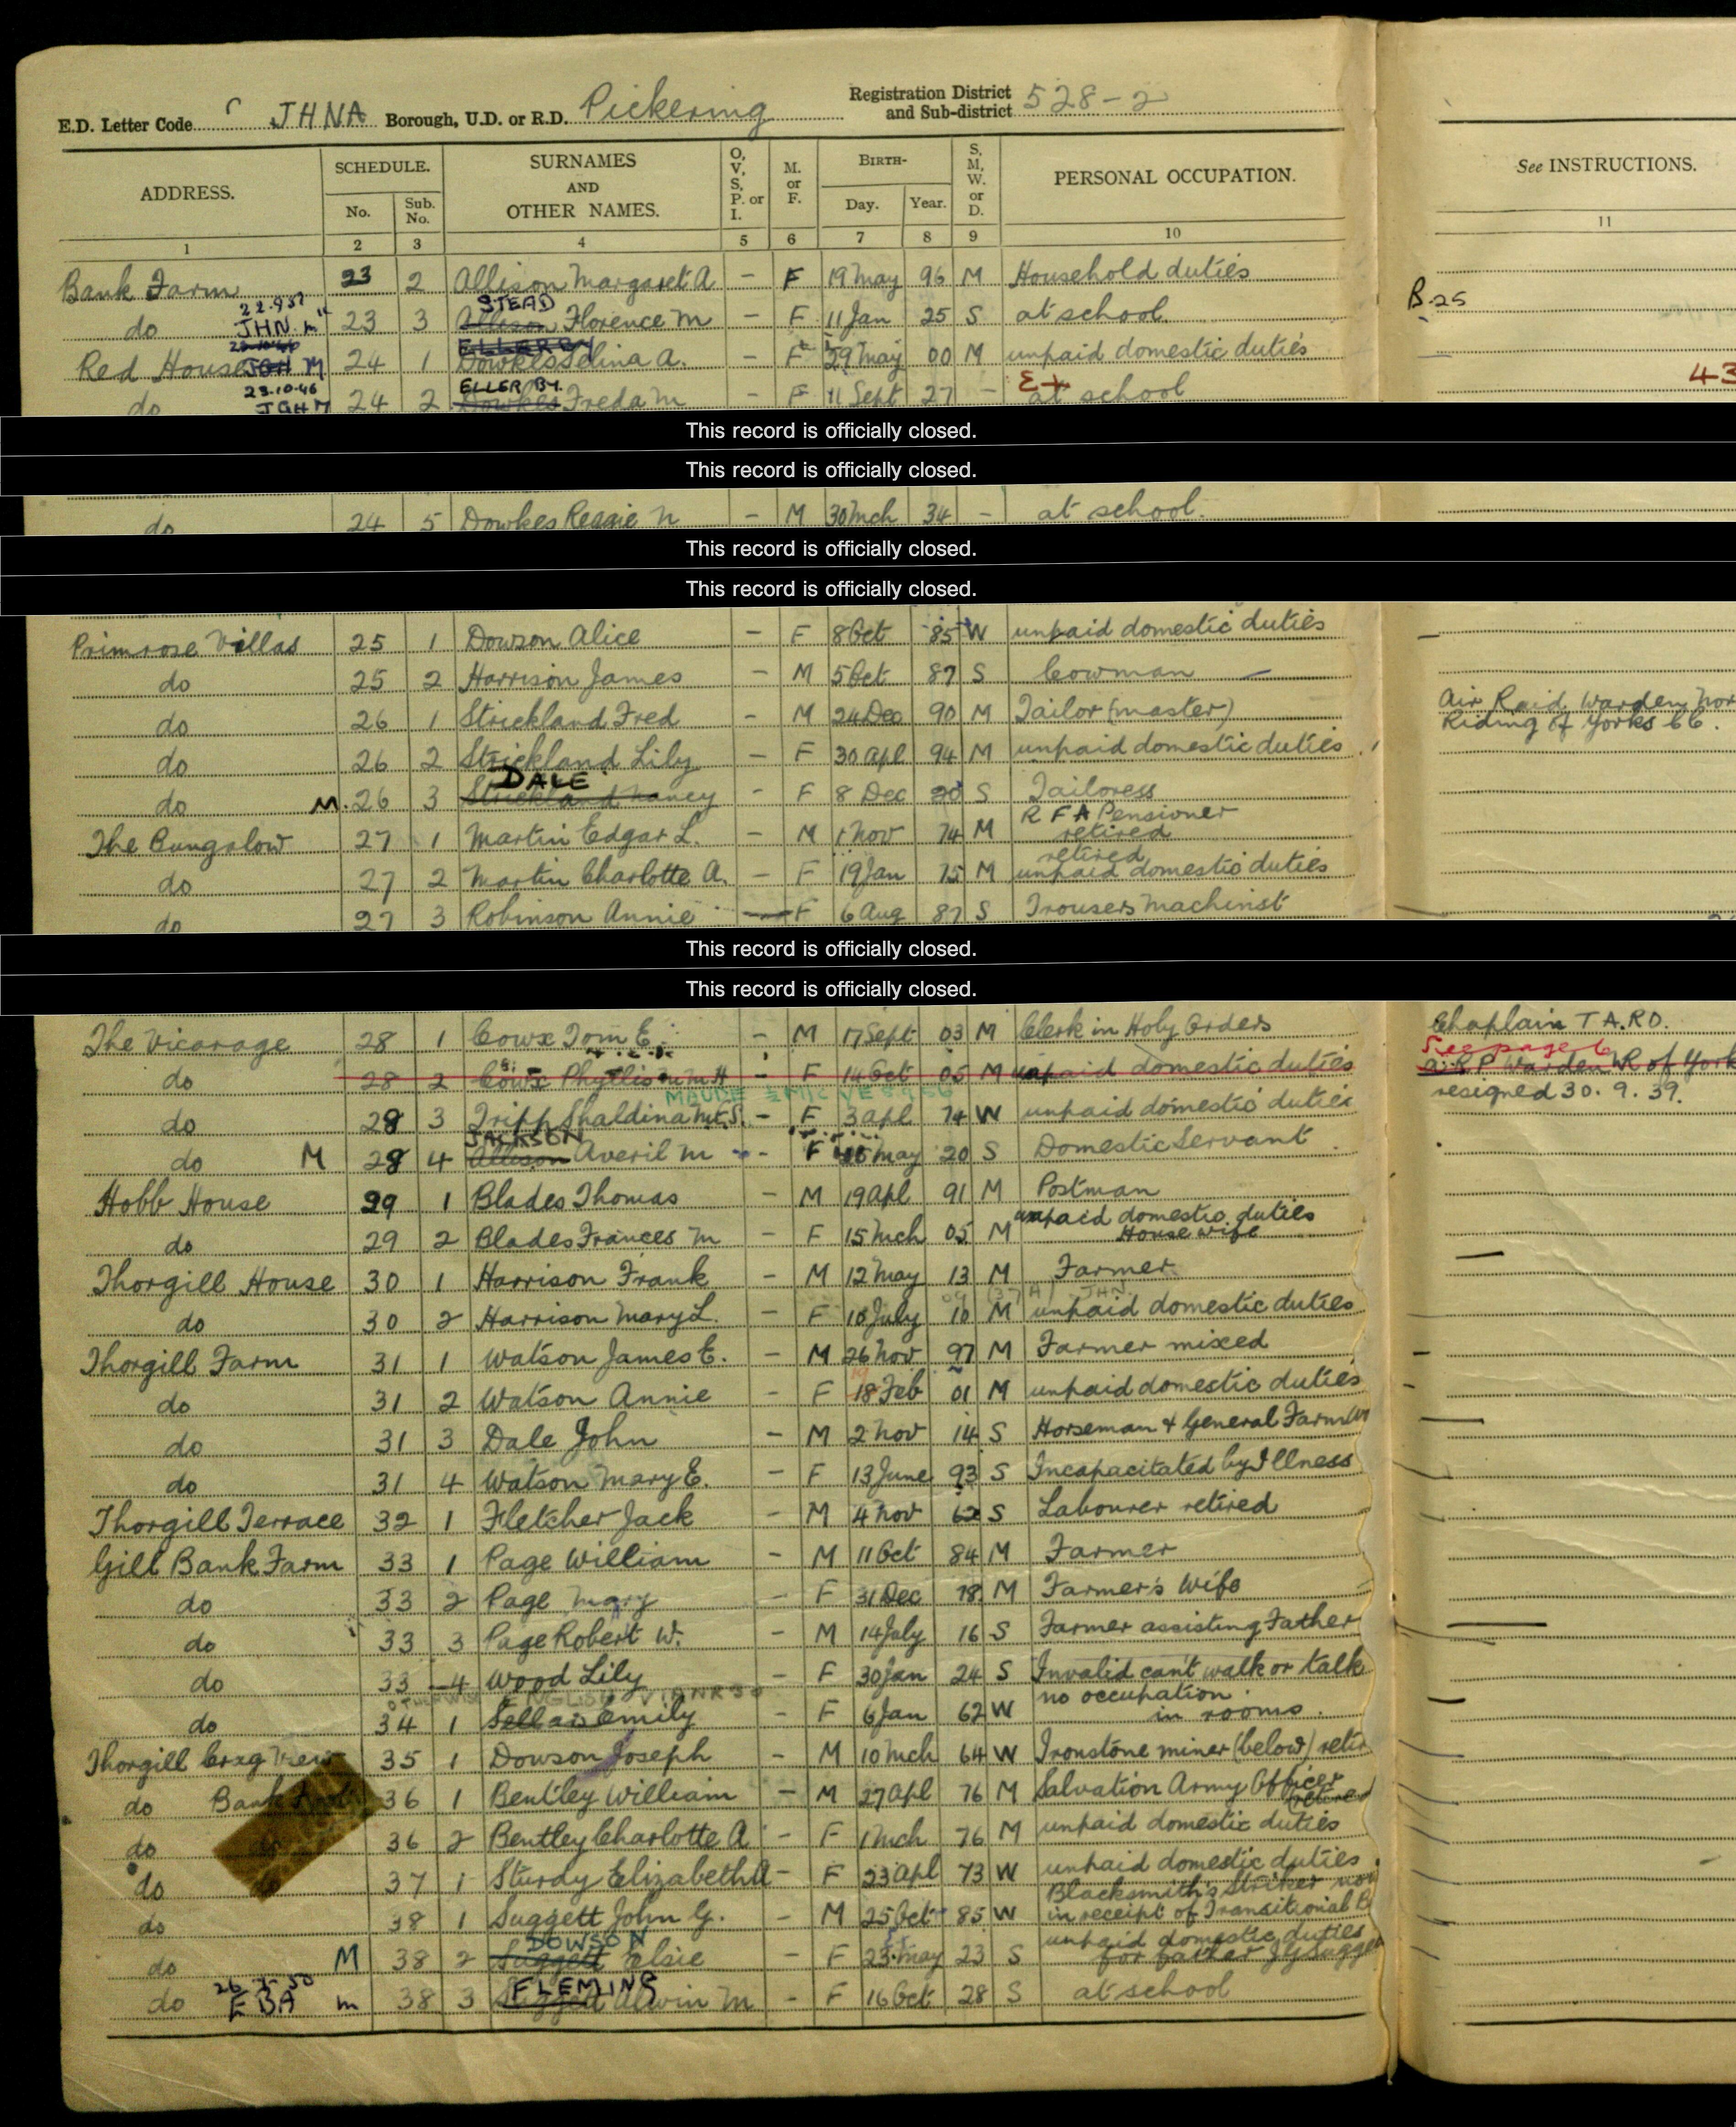 E.D. Letter Code JHNA Borough, U.D. or R.D. Pickering Registration District and Sub-district 528-2
ADDRESS. SCHEDULE. No. Sub. No. SURNAMES AND OTHER NAMES. O, V, S, P. or I. M. or F. BIRTH- Day. Year. S, M, W. or D. PERSONAL OCCUPATION. See INSTRUCTIONS.
1 2 3 4 5 6 7 8 9 10 11
Bank Farm 23 2 Allison Margaret A - F 19 May 96 M Household duties
STEAD
do JHN 23 3 Allison Florence M - F 11 Jan 25 S at school B.25
ELLERBY
Red House M 24 1 Dowkes Selina A. - F 29 May 00 M unpaid domestic duties
23.10.46 ELLERBY
do JGHM 24 2 Dowkes Freda M - F 11 Sept 27 - at school 43
This record is officially closed.
This record is officially closed.
do 24 5 Dowkes Reggie N - M 30 Mch 34 - at school.
This record is officially closed.
This record is officially closed.
Primrose Villas 25 1 Dowson Alice - F 8 Oct 85 W unpaid domestic duties
do 25 2 Harrison James - M 5 Oct 87 S Cowman
do 26 1 Strickland Fred - M 24 Dec 90 M Tailor (master) Air Raid Warden Nor
Riding of Yorks CC.
do 26 2 Strickland Lily - F 30 Apl 94 M unpaid domestic duties
DALE
do M. 26 3 Strickland Nancy - F 8 Dec 20 S Tailoress
The Bungalow 27 1 Martin Edgar L. - M 1 Nov 74 M R F A Pensioner retired
do 27 2 Martin Charlotte A. - F 19 Jan 75 M retired unpaid domestic duties
do 27 3 Robinson Annie - F 6 Aug 87 S Trousers Machinst
This record is officially closed.
This record is officially closed.
The Vicarage 28 1 Cowx Tom E. - M 17 Sept 03 M Clerk in Holy Orders Chaplain T A.RO.
See page 6
do 28 2 Cowx Phyllis M M H - F 14 Oct 05 M unpaid domestic duties A.R.P Warden NR of York
resigned 30.9.39.
MAUDE
do 28 3 Tripp Shaldina M.E.S. - F 3 Apl 74 W unpaid domestic duties
JACKSON
do M 28 4 Allison Averil M - F May 20 S Domestic Servant
Hobb House 29 1 Blades Thomas - M 19 Apl 91 M Postman
do 29 2 Blades Frances M - F 15 Mch 05 M unpaid domestic duties House wife
Thorgill House 30 1 Harrison Frank - M 12 May 13 M Farmer
do 30 2 Harrison Mary L. - F 10 July 10 M unpaid domestic duties
Thorgill Farm 31 1 Watson James E. - M 26 Nov 97 M Farmer mixed
do 31 2 Watson Annie - F 18 Feb 01 M unpaid domestic duties
do 31 3 Dale John - M 2 Nov 14 S Horseman & General Farm
do 31 4 Watson Mary E. - F 13 June 93 S Incapacitated by Illness
Thorgill Terrace 32 1 Fletcher Jack - M 4 Nov 62 S Labourer retired
Gill Bank Farm 33 1 Page William - M 11 Oct 84 M Farmer
do 33 2 Page Mary - F 31 Dec 78 M Farmer's Wife
do 33 3 Page Robert W. - M 14 July 16 S Farmer assisting Father
do 33 4 Wood Lily - F 30 Jan 24 S Invalid can't walk or talk
do 34 1 Emily - F 6 Jan 62 W no occupation in rooms.
Thorgill Crag View 35 1 Dowson Joseph - M 10 Mch 64 W Ironstone miner (below) retir
do Bank 36 1 Bentley William - M 27 Apl 76 M Salvation Army Officer retired
do 36 2 Bentley Charlotte A - F 1 Mch 76 M unpaid domestic duties
do 37 1 Sturdy Elizabeth A - F 23 Apl 73 W unpaid domestic duties
do 38 1 Suggett John G. - M 25 Oct 85 W Blacksmith's Striker now
in receipt of Transitional B
DOWSON
do M 38 2 Suggett Elsie - F 23 May 23 S unpaid domestic duties
for father J G Sugge
FLEMING
do FBA m 38 3 Suggett Alwin M - F 16 Oct 28 S at school